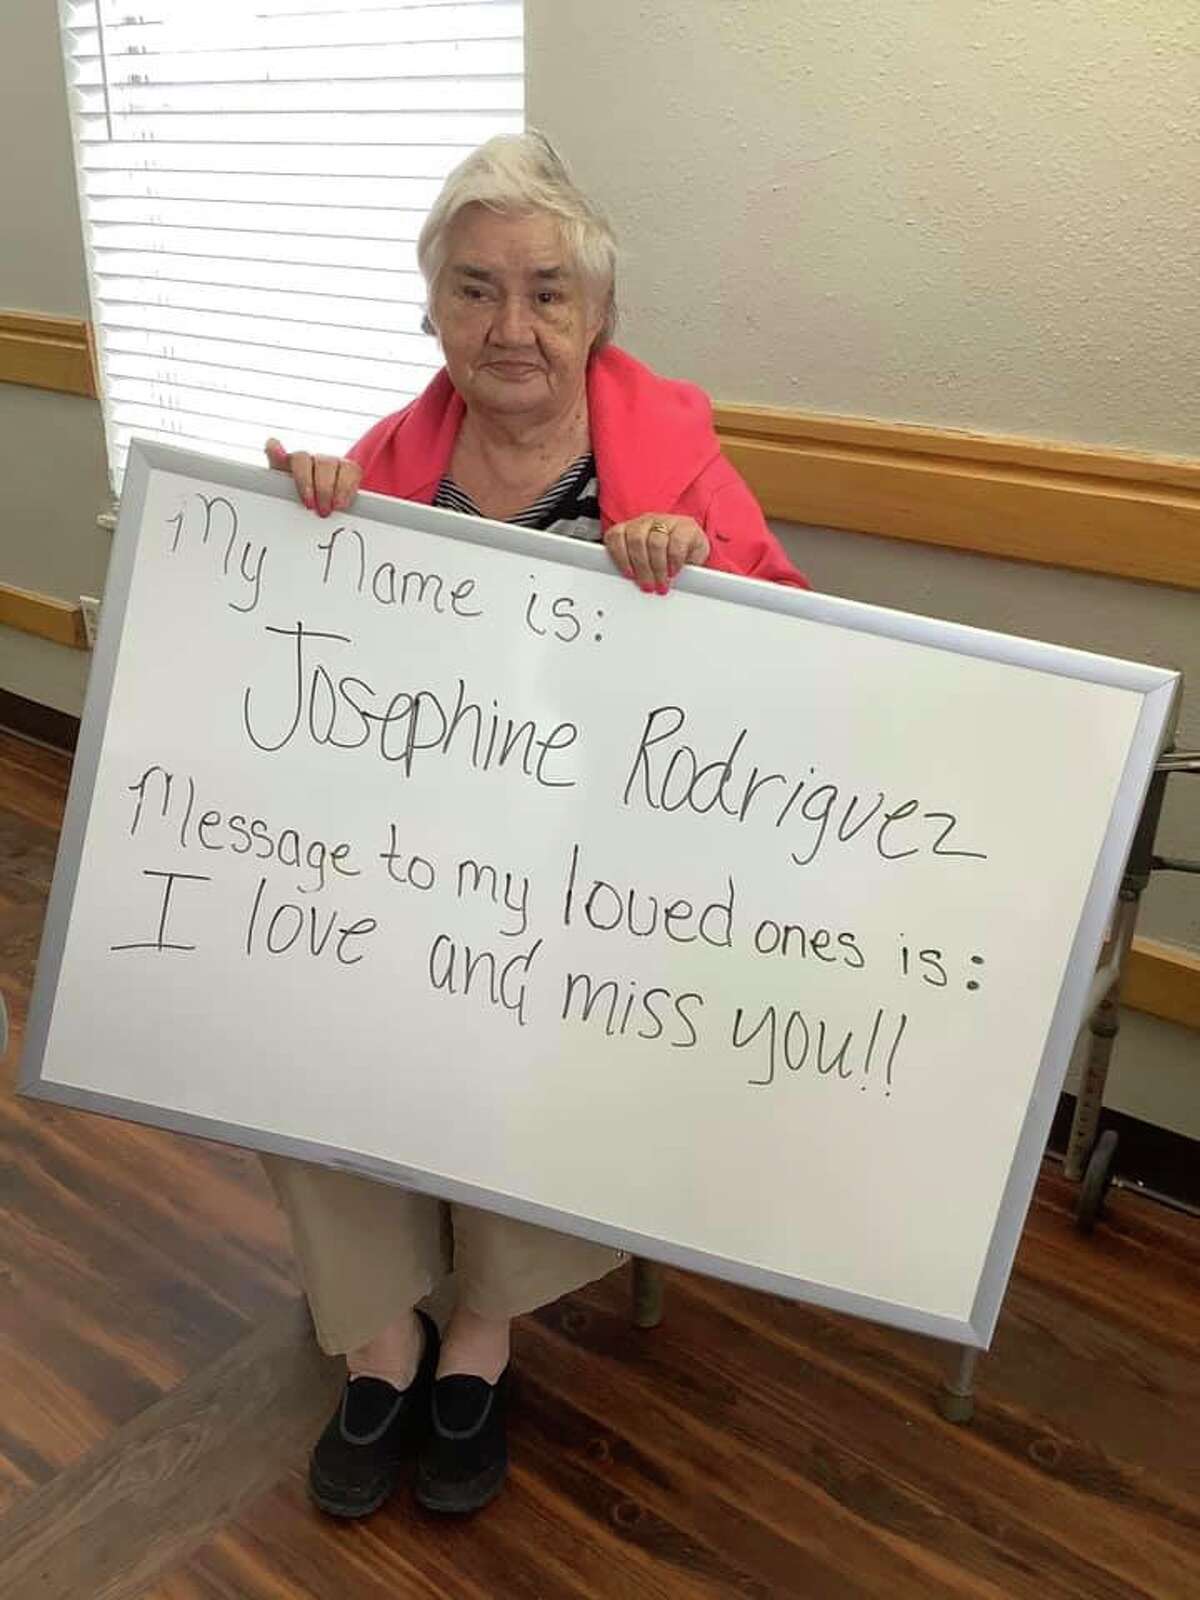 My name is:
Josephine Rodriguez
Message to my loved ones is:
I love and miss you!!